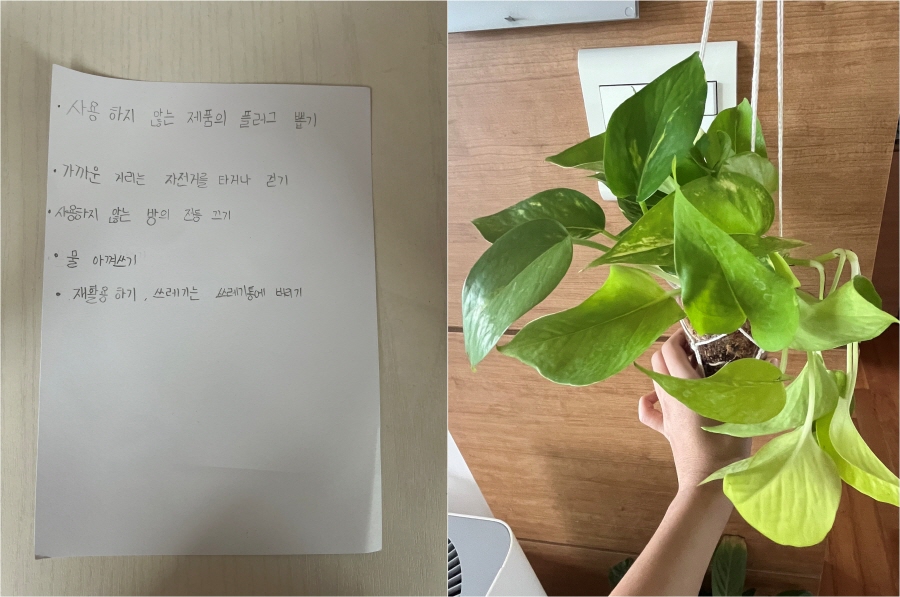 · 사용 하지 않는 제품의 플러그 뽑기
· 가까운 거리는 자전거를 타거나 걷기
· 사용하지 않는 방의 전등 끄기
· 물 아껴쓰기
· 재활용 하기, 쓰레기는 쓰레기통에 버리기